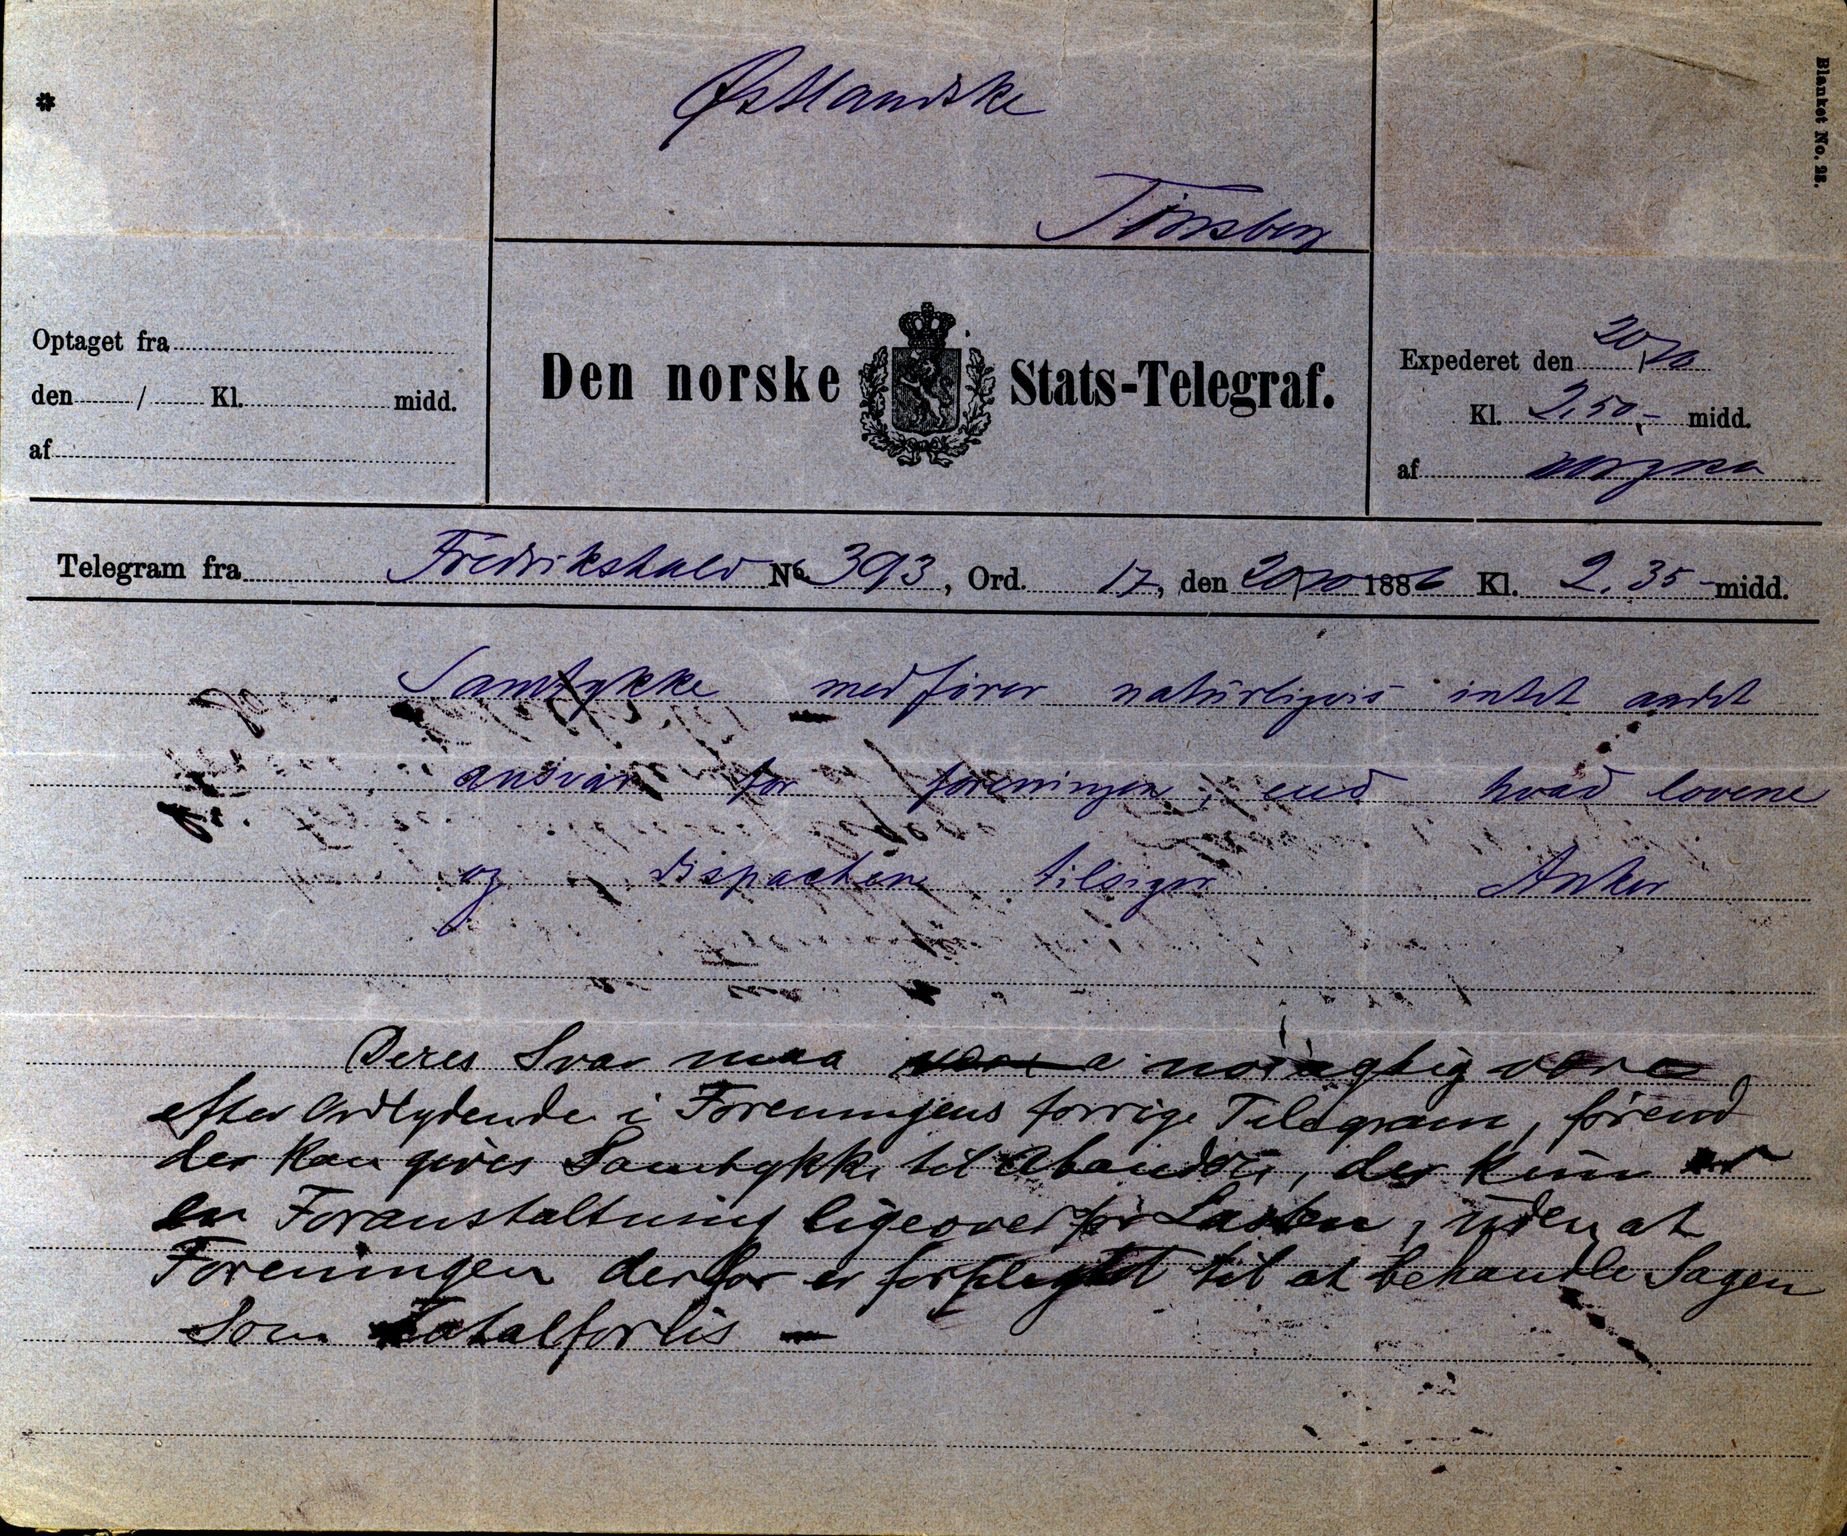 *
Østlandske
Tønsberg
Blanket No. 28.
Optaget fra
den / Kl. midd.
af
Den norske Stats-Telegraf.
Expederet den 20/10
Kl. 2.50 midd.
af
Telegram fra Fredrikshald No. 393, Ord. 17, den 20/10 1886 Kl. 2.35 midd.
Samtykke medfører naturligvis intet andet
ansvar for foreningen, end hvad lovene
og dispachen tilsiger Anker
Deres Svar maa nøiagtig være
efter Ordlydende i Foreningens forrige Telegram, førend
der kan gives Samtykke til Abandon, der kun er
en Foranstaltning ligeoverfor Lasten, uden at
Foreningen derfor er forpligtet til at behandle Sagen
som Totalforlis -